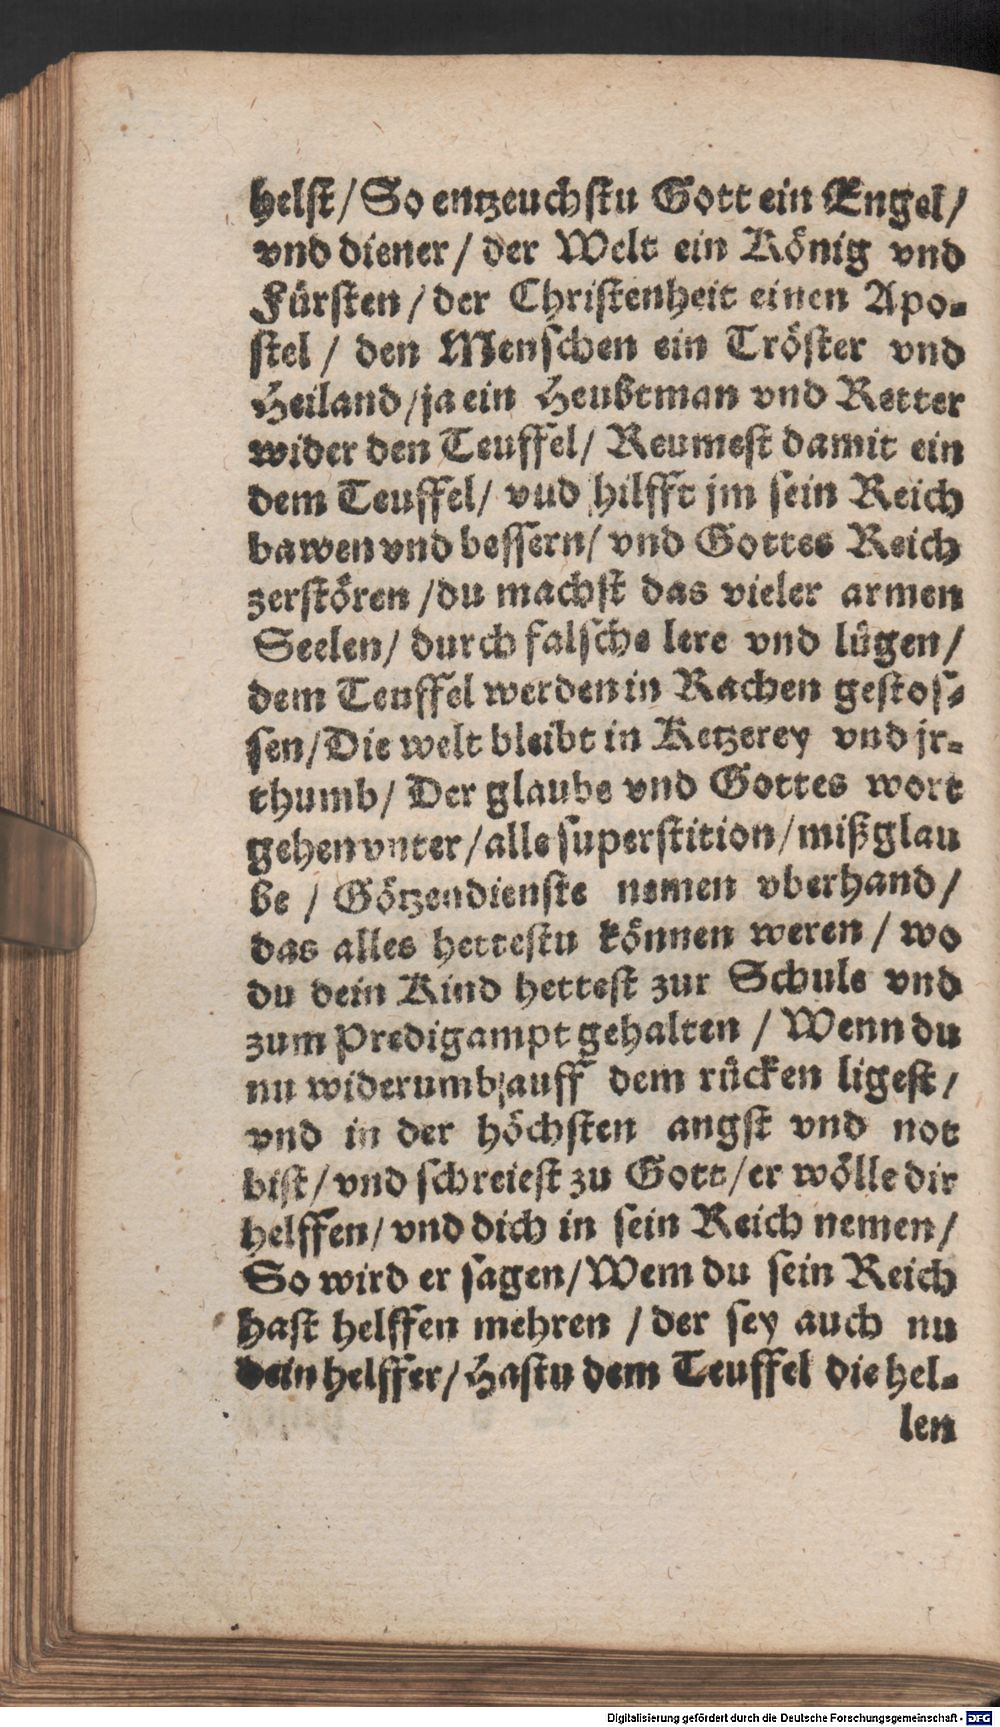 helst/ So entzeuchstu Gott ein Engel/
vnd diener/ der Welt ein König vnd
Fürsten/ der Christenheit einen Apo-
stel/ den Menschen ein Tröster vnd
Heiland/ ja ein Heubtman vnd Retter
wider den Teuffel/ Reumest damit ein
dem Teuffel/ vud hilfft jm sein Reich
bawen vnd bessern/ vnd Gottes Reich
zerstören/ du machst das vieler armen
Seelen/ durch falsche lere vnd lügen/
dem Teuffel werden in Rachen gestos-
sen/ Die welt bleibt in Ketzerey vnd jr-
thumb/ Der glaube vnd Gottes wort
gehen vnter/ alle superstition/ mißglau
be/ Götzendienste nemen vberhand/
das alles hettestu können weren/ wo
du dein Kind hettest zur Schule vnd
zum Predigampt gehalten/ Wenn du
nu widerumb auff dem rücken ligest/
vnd in der höchsten angst vnd not
bist/ vnd schreiest zu Gott/ er wölle dir
helffen/ vnd dich in sein Reich nemen/
So wird er sagen/ Wem du sein Reich
hast helffen mehren/ der sey auch nu
dein helffer/ Hastu dem Teuffel die hel-
len
Digitalisierung gefördert durch die Deutsche Forschungsgemeinschaft - DFG